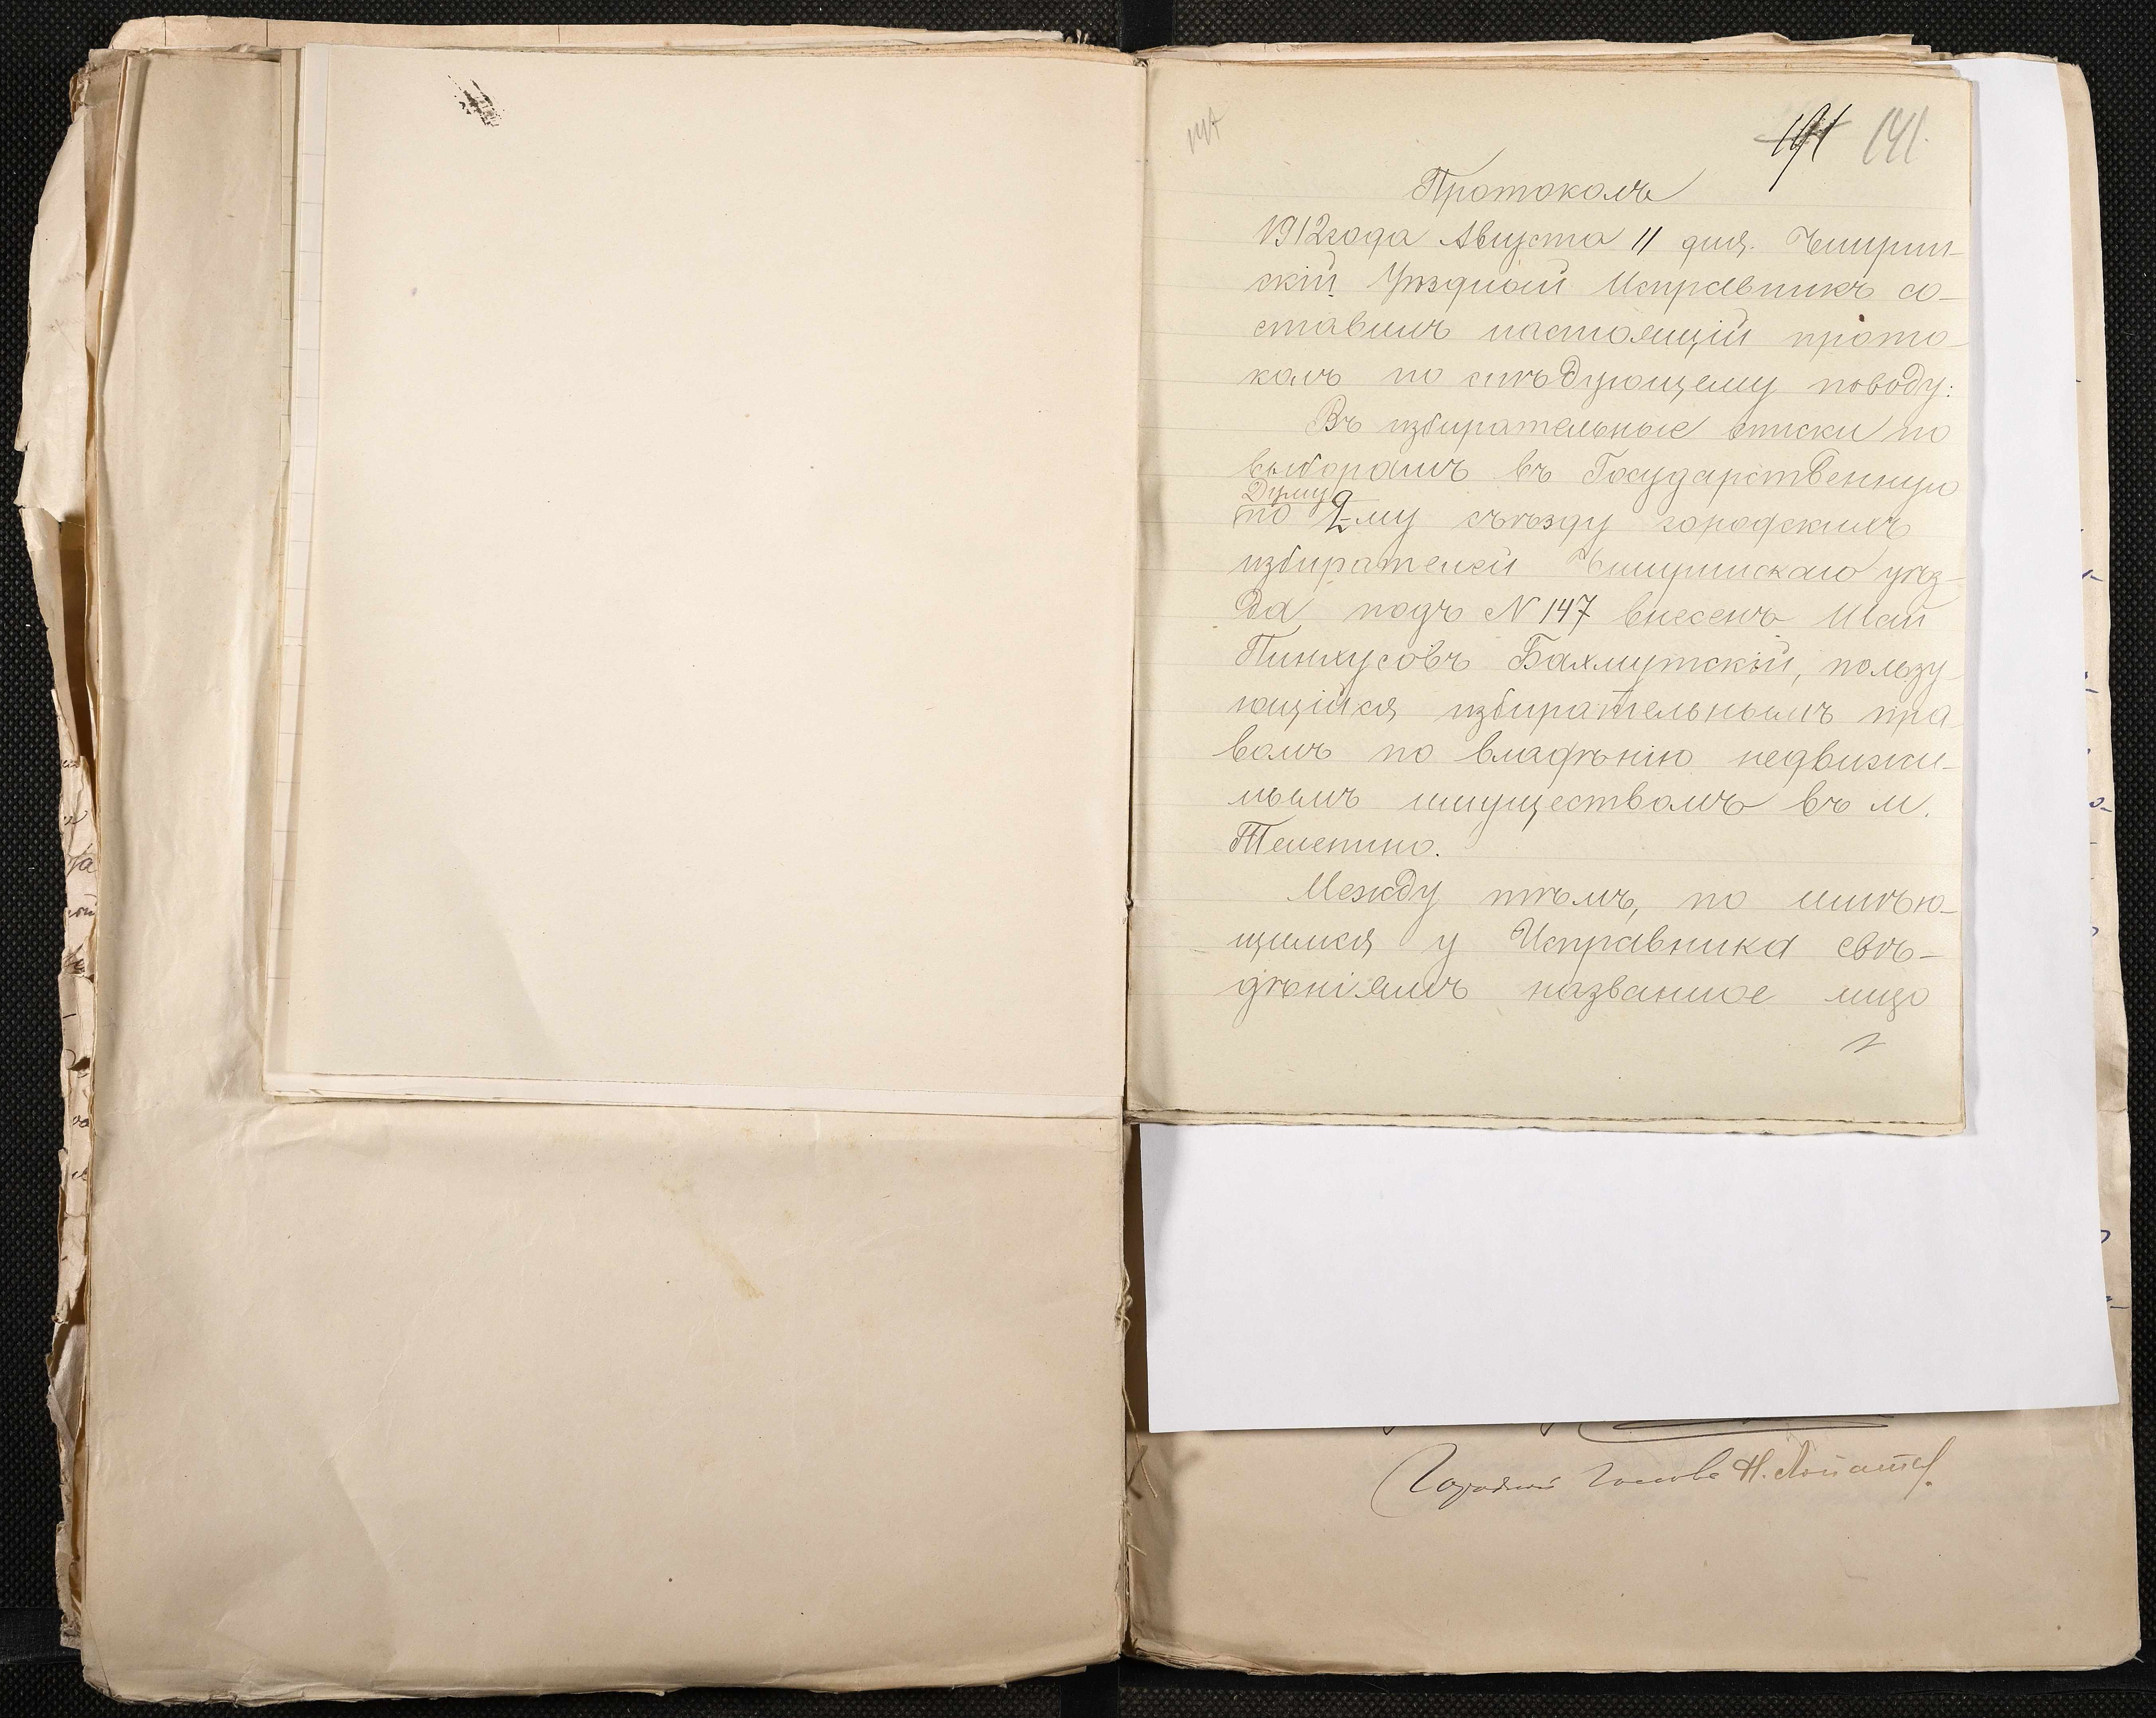 147
191 141.
Протоколъ
1912 года Августа 11 дня. Чигирин-
скій Уѣздный Исправникъ со-
ставилъ настоящій прото-
колъ по слѣдующему поводу:
Въ избирательные списки по
выборамъ въ Государственную
Думу
по 2-му съѣзду городскихъ
избирателей Чигиринскаго уѣз-
да подъ № 147 внесенъ Шая
Пинхусовъ Бахмутскій, пользу-
ющійся избирательнымъ пра
вомъ по владѣнію недвижи-
мымъ имуществомъ въ м.
Телепино.
Между тѣмъ, по имѣю-
щимся у Исправника свѣ-
дѣніямъ названное лицо
Городской Голова Н.